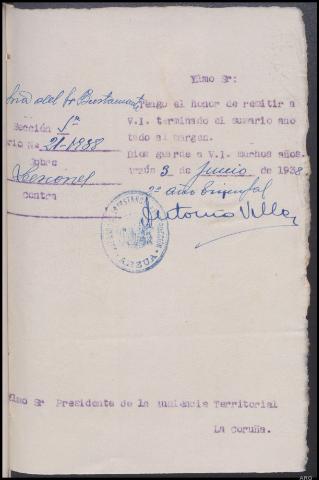 Yltmo Sr:
del Sr Bustamante
Sección 1ª
rio Nº 21-1938
Sobre
Lesiones
Contra
Tengo el honor de remitir a
V.I. terminado el sumario ano
tado al margen.
Dios guarde a V.I. muchos años.
rzúa 3 de Junio de 1938
2º año triunfal
Antonio Villa
ARZUA
ltmo Sr Presidente de la Audiencia Territorial
La Coruña.